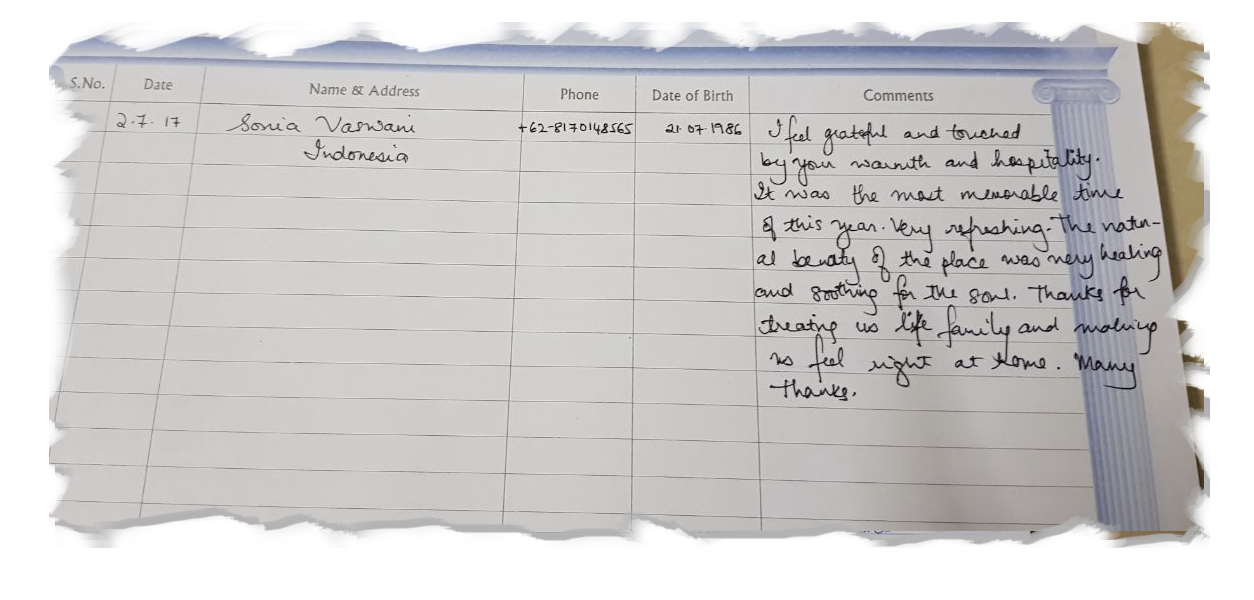 S.No. Date Name & Address Phone Date of Birth Comments
2.7.17 Sonia Vaswani +62-8170148565 21.07.1986 I feel grateful and touched
Indonesia by your warmth and hospitality.
It was the most memorable time
of this year. Very refreshing. The natur-
al beauaty of the place was very healing
and soothing for the soul. Thanks for
treating us life family and making
us feel right at home. Many
Thanks.